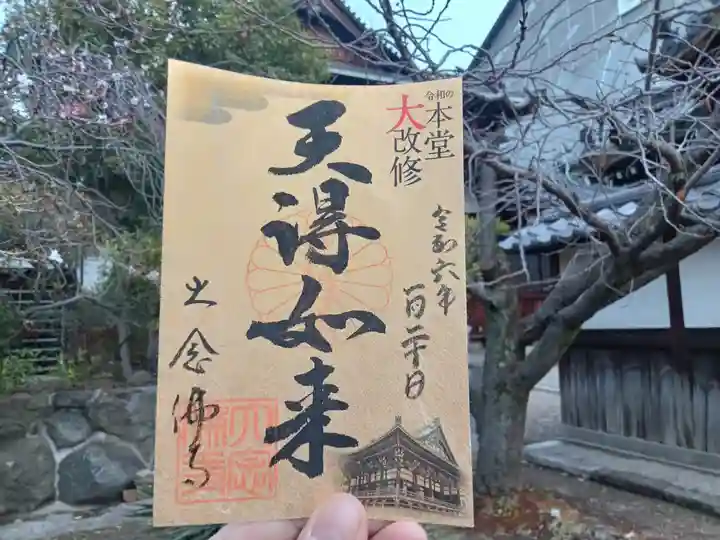 令和の
本堂
大改修
令和六年
一月二十日
天得如来
大念佛寺